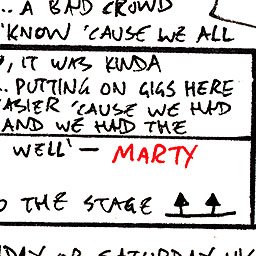 ... A BAD CROWD
'KNOW 'CAUSE WE ALL
, IT WAS KINDA
.. PUTTING ON GIGS HERE
EASIER 'CAUSE WE HAD
AND WE HAD THE
WELL' — MARTY
THE STAGE